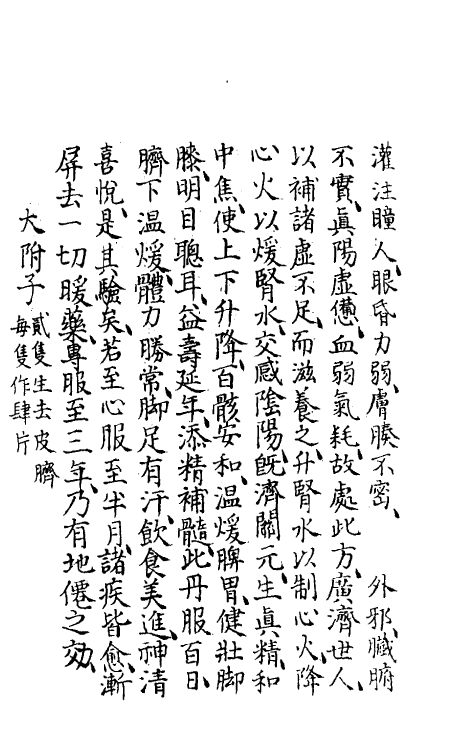 灌注瞳人、眼昏力弱、膚腠不密、　外邪、臟腑
不實、眞陽虛憊、血弱氣耗、故處此方、廣濟世人、
以補諸虛不足、而滋養之、升腎水以制心火、降
心火以煖腎水、交感陰陽、旣濟關元、生眞精、和
中焦、使上下升降、百骸安和、温煖脾胃、健壯脚
膝、明目聰耳、益壽延年、添精補髓、此丹服百日、
臍下温煖、體力勝常、脚足有汗、飲食美進、神清
喜悅、是其驗矣、若至心服至半月、諸疾皆愈、漸
屏去一切暖藥、專服至三年、乃有地僊之効、
大附子 貳隻生去皮臍
每隻作肆片